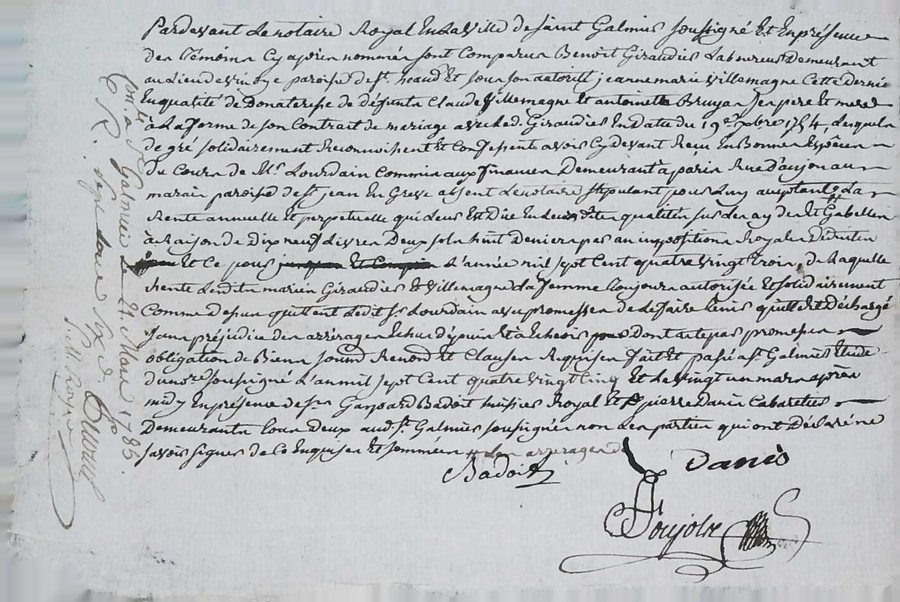 Pardevant Le notaire Royal En La Ville de Saint Galmier Soussigné Et En présence
des témoins Cy après nommés sont Comparus Benoit Giraudier Laboureur Demeurant
au Lieu de paroisse de St. Et sous son autorité jeanne marie Villemagne Cette Derniere
En qualité de donataire de deffunts Claude Villemagne et antoinette Bruyas ses pere Et mere
à La forme de son Contrat de mariage avec Led. Giraudier En date du 19e xbre 1754, Lesquels
de gré solidairement Reconnoissent Et Confessent avoir Cy devant Reçu En Bonnes Espèces
du Cours de Mr. Lourdain Commis aux finances Demeurant à paris Rue d'anjou au
marais paroisse de St. jean En Greve absent Le notaire stipulant pour Luy acceptant La
Rente annuelle et perpetuelle qui Leur Est Due En Leurs dites qualités sur Les aydes Et Gabelles
à Raison de dix neuf Livres Deux sols huit deniers par an impositions Royales Déduites
Et Ce pour L'année mil sept Cent quatre vingt trois, de Laquelle
Rente Lesdits mariés Giraudier Et Villemagne La femme toujours autorisée Et solidairement
Comme dessus quittent Ledit Sr. Lourdain avec promesse de Le faire tenir quitte Et déchargé
Sans préjudice des arrérages Echus depuis Et à Echeoir Dont acte par promesses
obligation de Biens soumis Renonc. Et Clauses Requises fait Et passé à St. Galmier Etude
du nore. soussigné L'an mil sept Cent quatre vingt Cinq Et Le Vingt un mars après
midy En présence de Sr. Gaspard Badoit huissier Royal Et Sr. pierre Danis Cabaretier
Demeurants tous Deux aud. St. Galmier soussignés non Les parties qui ont Déclaré ne
savoir signer de Ce Enquises Et sommées # Les arrerages de
Badoit
Danis
Poujols
Con. à St Galmier Le 24 Mars 1785.